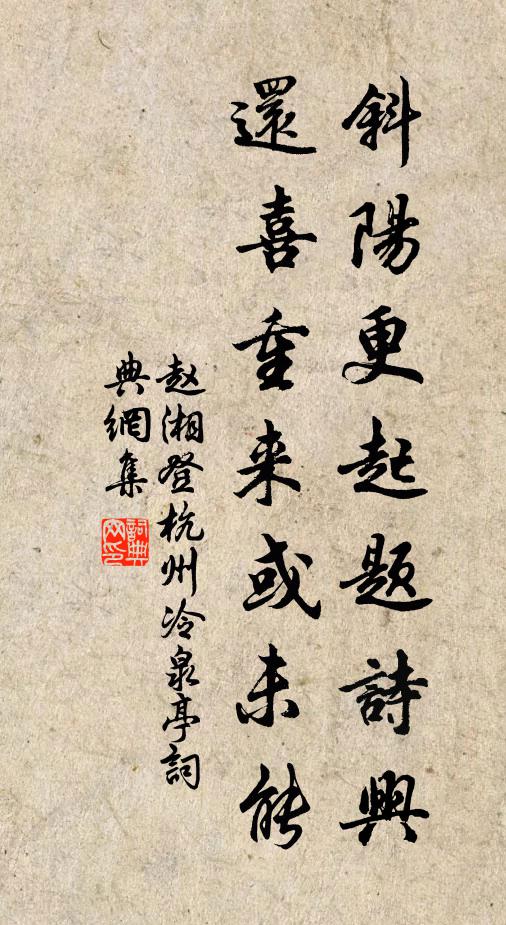 斜陽更起題詩興
還喜重来或未能
赵湘登杭州冷泉亭詞
典網集
詞典
网印